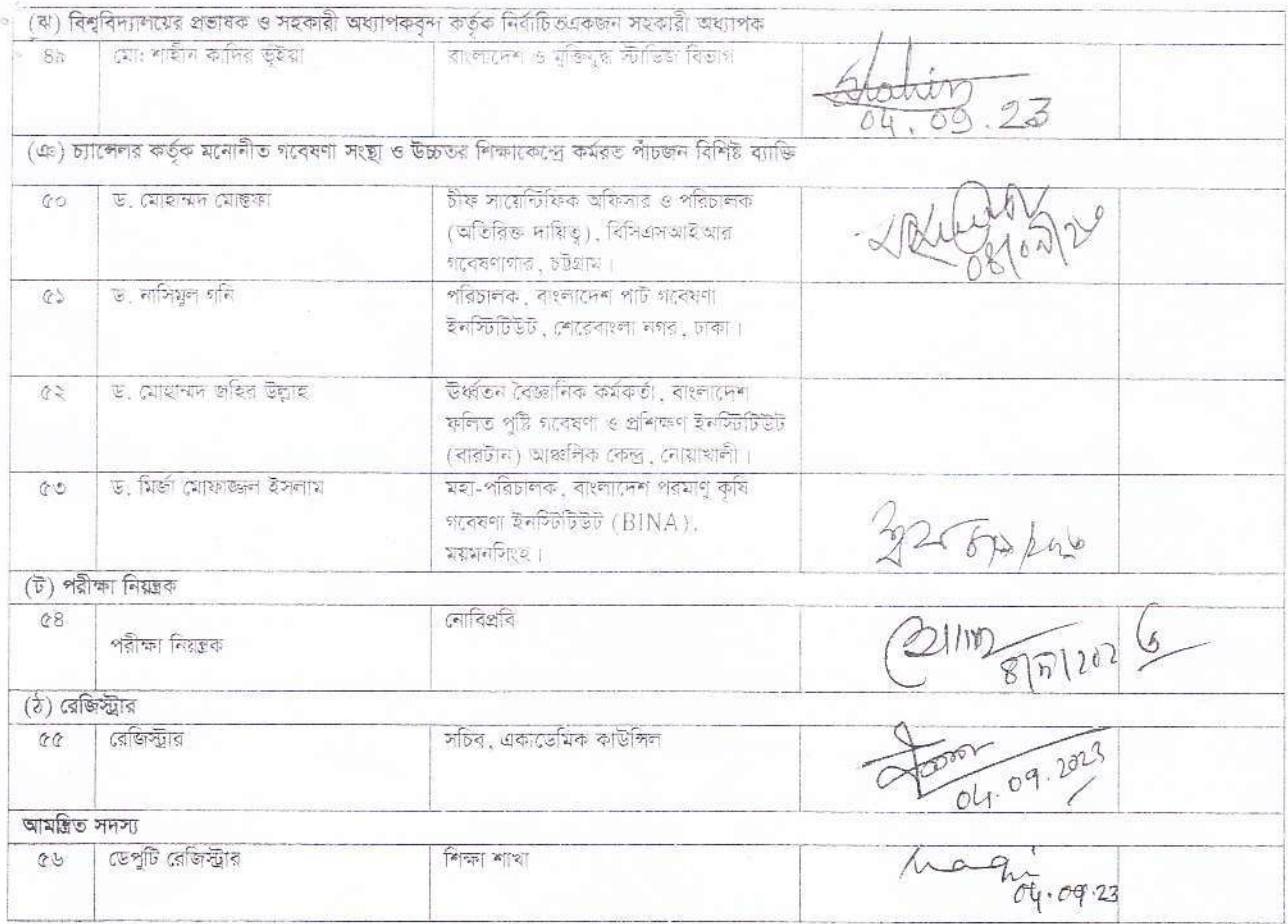 (ঝ) বিশ্ববিদ্যালয়ের প্রভাষক ও সহকারী অধ্যাপকবৃন্দ কর্তৃক নির্বাচিতএকজন সহকারী অধ্যাপক
৪৯ মো: শাহীন কাদির ভূঁইয়া বাংলাদেশ ও মুক্তিযুদ্ধ স্টাডিজ বিভাগ
Shahin
04.09.23
(ঞ) চ্যান্সেলর কর্তৃক মনোনীত গবেষণা সংস্থা ও উচ্চতর শিক্ষাকেন্দ্রে কর্মরত পাঁচজন বিশিষ্ট ব্যাক্তি
৫০ ড. মোহাম্মদ মোস্তফা চীফ সায়েন্টিফিক অফিসার ও পরিচালক
(অতিরিক্ত দায়িত্ব), বিসিএসআইআর
গবেষণাগার, চট্টগ্রাম।
৫১ ড. নাসিমুল গনি পরিচালক, বাংলাদেশ পাট গবেষণা
ইনস্টিটিউট, শেরেবাংলা নগর, ঢাকা।
৫২ ড. মোহাম্মদ জহির উল্লাহ ঊর্ধ্বতন বৈজ্ঞানিক কর্মকর্তা, বাংলাদেশ
ফলিত পুষ্টি গবেষণা ও প্রশিক্ষণ ইনস্টিটিউট
(বারটান) আঞ্চলিক কেন্দ্র, নোয়াখালী।
৫৩ ড. মির্জা মোফাজ্জল ইসলাম মহা-পরিচালক, বাংলাদেশ পরমাণু কৃষি
গবেষণা ইনস্টিটিউট (BINA),
ময়মনসিংহ।
(ট) পরীক্ষা নিয়ন্ত্রক
৫৪ পরীক্ষা নিয়ন্ত্রক নোবিপ্রবি
(ঠ) রেজিস্ট্রার
৫৫ রেজিস্ট্রার সচিব, একাডেমিক কাউন্সিল
04.09.2023
আমন্ত্রিত সদস্য
৫৬ ডেপুটি রেজিস্ট্রার শিক্ষা শাখা
04.09.23